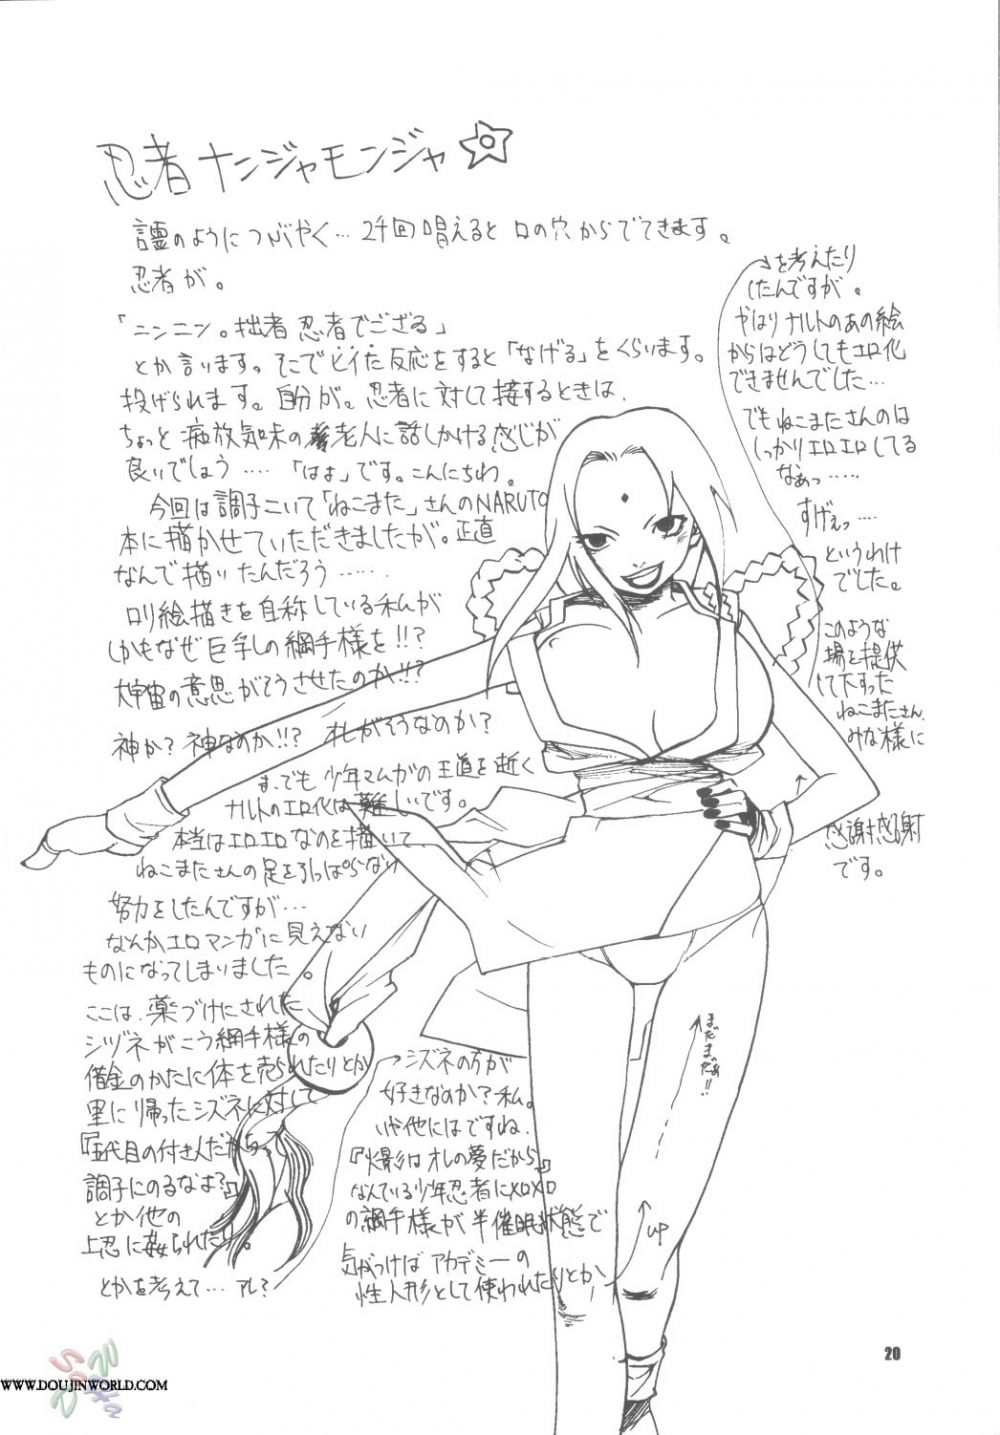 忍者ナンジャモンジャ☆
譫言のようにつぶやく…2千回唱えると口の穴からでてきます。
忍者が。
「ニンニン。拙者忍者でござる」
とか言います。そこでどイた反応をすると「なげる」をくらいます。
投げられます。自分が。忍者に対して接するときは、
ちょっと痴放気味の養老人に話しかける感じが
良いでしょう……「はぁ」です。こんにちわ。
今回は調子こいて「ねこまた」さんのNARUTO
本に描かせていただきましたが。正直
なんで描いたんだろう……
ロリ絵描きを自称している私が
しかもなぜ巨乳しの綱手様を!!?
大宇宙の意思がそうさせたのか!!?
神か?神なのか!!?オレがそうなのか?
ま、でも少年マムガの王道を逝く
ナルトのエロ化は難しいです。
本当はエロエロなのを描いて
ねこまたさんの足を引っぱらない
努力をしたんですが…
なんかエロマンガに見えない
ものになってしまいました。
ここは、薬づけにされた
シヅネがこう綱手様の
借金のかたに体を売られたりとか
里に帰ったシズネに対して
『五代目の付き人だからって
調子にのるなよ?』
とか他の
上忍に姦られたり。
とかを考えて…アレ?
シズネの方が
好きなのか?私。
いや他にはですね、
『火影はオレの夢だから』
なんている少年忍者にXOXO
の綱手様が半催眠状態で
気がつけばアカデミーの
性人形として使われたりとか、
を考えたり
したんですが。
やはりナルトのあの絵
からはどうしてもエロ化
できませんでした…
でもねこまたさんのは
しっかりエロエロしてる
なぁっ……
すげぇっ…
というわけ
でした。
このような
場を提供
して下すった
ねこまたさん、
みな様に
感謝感謝
です。
まだまだぁ!!
UP
20
WWW.DOUJINWORLD.COM